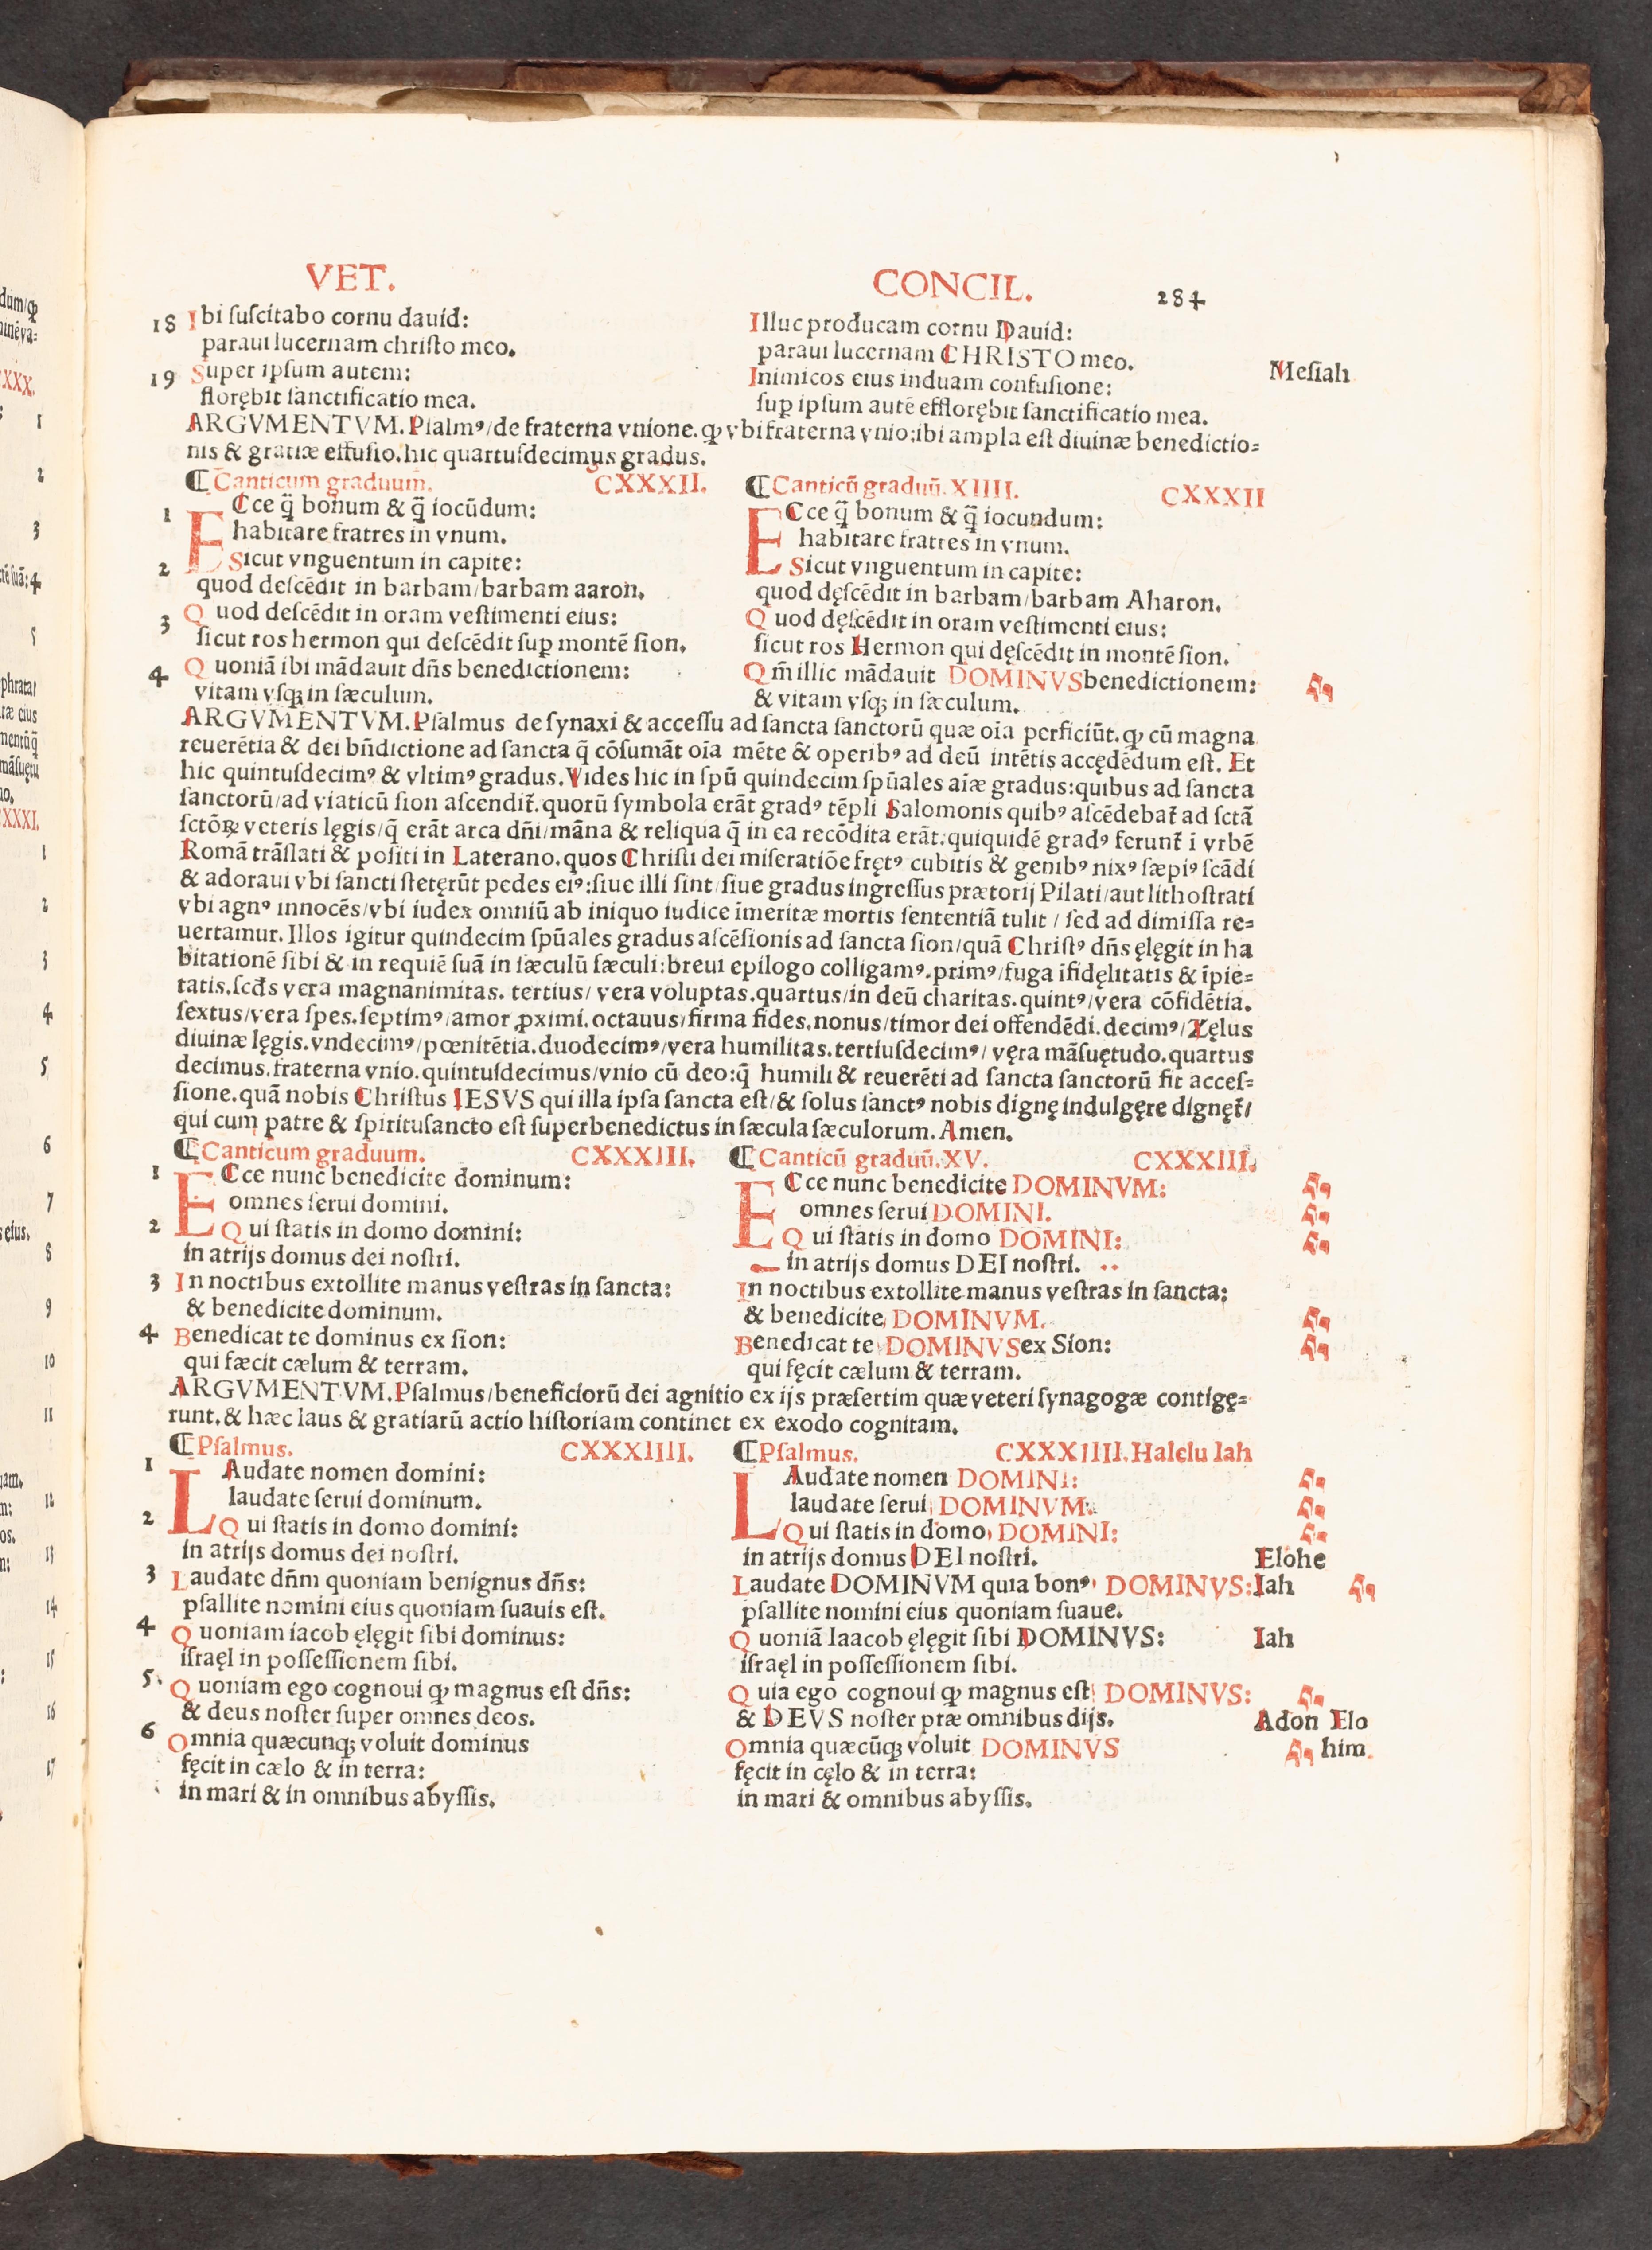 VET.
18 Ibi ſuſcitabo cornu dauid:
paraui lucernam chriſto meo.
19 Super ipſum autem:
florębit ſanctificatio mea.
CONCIL. 284
Illuc producam cornu Dauid:
paraui lucernam CHRISTO meo. Meſiah
Inimicos eius induam confuſione:
ſuꝑ ipſum autē efflorębit ſanctificatio mea.
ARGVMENTVM. Pſalmꝰ/de fraterna vnione. ꝙ vbi fraterna vnio:ibi ampla eſt diuinæ benedictio⸗
nis & gratiæ effuſio. hic quartuſdecimus gradus.
¶ Canticum graduum. CXXXII.
1 ECce q̄ bonum & q̄ iocūdum:
habitare fratres in vnum.
2 Sicut vnguentum in capite:
quod deſcēdit in barbam/barbam aaron.
3 Quod deſcēdit in oram veſtimenti eius:
ſicut ros hermon qui deſcēdit ſuꝑ montē ſion.
4 Quoniā ibi mādauit dn̄s benedictionem:
vitam vſqꝫ in ſæculum.
¶ Canticū graduū. XIIII. CXXXII
ECce q̄ bonum & q̄ iocundum:
habitare fratres in vnum.
Sicut vnguentum in capite:
quod dęſcēdit in barbam/barbam Aharon.
Quod dęſcēdit in oram veſtimenti eius:
ſicut ros Hermon qui dęſcēdit in montē ſion.
Qm̄ illic mādauit DOMINVS benedictionem:
& vitam vſqꝫ in ſæculum.
ARGVMENTVM. Pſalmus de ſynaxi & acceſſu ad ſancta ſanctorū quæ oīa perficiūt. ꝙ cū magna
reuerētia & dei bn̄dictione ad ſancta q̄ cōſumāt oīa mēte & operibꝰ ad deū intētis accędēdum eſt. Et
hic quintuſdecimꝰ & vltimꝰ gradus. Vides hic in ſpū quindecim ſpūales aīæ gradus:quibus ad ſancta
ſanctorū/ad viaticū ſion aſcendit̄. quorū ſymbola erāt gradꝰ tēpli Salomonis quibꝰ aſcēdebat̄ ad ſctā
ſctōꝝ veteris lęgis/q̄ erāt arca dn̄i/māna & reliqua q̄ in ea recōdita erāt: quiquidē gradꝰ ferunt̄ ī vrbē
Romā trāſlati & poſiti in Laterano. quos Chriſti dei miſeratiōe fręt⁹ cubitis & genibꝰ nixꝰ ſæpiꝰ ſcādi
& adoraui vbi ſancti ſtetęrūt pedes eiꝰ: ſiue illi ſint/ſiue gradus ingreſſus prætorij Pilati/aut lithoſtrati
vbi agnꝰ innocēs/vbi iudex omniū ab iniquo iudice īmeritæ mortis ſententiā tulit / ſed ad dimiſſa re⸗
uertamur. Illos igitur quindecim ſpūales gradus aſcēſionis ad ſancta ſion/quā Chriſtꝰ dn̄s ęlęgit in ha
bitationē ſibi & in requiē ſuā in ſæculū ſæculi:breui epilogo colligamꝰ. primꝰ/fuga īfidęlitatis & īpie⸗
tatis. ſcd̄s vera magnanimitas. tertius/ vera voluptas. quartus/in deū charitas. quintꝰ/vera cōfidētia.
ſextus/vera ſpes. ſeptimꝰ/amor ꝓximi. octauus/firma fides. nonus/timor dei offendēdi. decimꝰ/Zęlus
diuinæ lęgis. vndecimꝰ/pœnitētia. duodecimꝰ/vera humilitas. tertiuſdecimꝰ/ vęra māſuętudo. quartus
decimus. fraterna vnio. quintuſdecimus/vnio cū deo:q̄ humili & reuerēti ad ſancta ſanctorū fit acceſ⸗
ſione. quā nobis Chriſtus IESVS qui illa ipſa ſancta eſt/& ſolus ſanctꝰ nobis dignę indulgęre dignęt̄/
qui cum patre & ſpirituſancto eſt ſuperbenedictus in ſæcula ſæculorum. Amen.
¶ Canticum graduum. CXXXIII.
1 ECce nunc benedicite dominum:
omnes ſerui domini.
2 Qui ſtatis in domo domini:
in atrijs domus dei noſtri.
3 In noctibus extollite manus veſtras in ſancta:
& benedicite dominum.
4 Benedicat te dominus ex ſion:
qui fæcit cælum & terram.
¶ Canticū graduū. XV. CXXXIII.
ECce nunc benedicite DOMINVM:
omnes ſerui DOMINI.
Qui ſtatis in domo DOMINI:
in atrijs domus DEI noſtri.
In noctibus extollite manus veſtras in ſancta:
& benedicite DOMINVM.
Benedicat te DOMINVS ex Sion:
qui fęcit cælum & terram.
ARGVMENTVM. Pſalmus/beneficiorū dei agnitio ex ijs præſertim quæ veteri ſynagogæ contigę⸗
runt. & hæc laus & gratiarū actio hiſtoriam continet ex exodo cognitam.
¶ Pſalmus. CXXXIIII.
1 LAudate nomen domini:
laudate ſerui dominum.
2 Qui ſtatis in domo domini:
in atrijs domus dei noſtri.
3 Laudate dn̄m quoniam benignus dn̄s:
pſallite nomini eius quoniam ſuauis eſt.
4 Quoniam iacob ęlęgit ſibi dominus:
iſraęl in poſſeſſionem ſibi.
5. Quoniam ego cognoui ꝙ magnus eſt dn̄s:
& deus noſter ſuper omnes deos.
6 Omnia quæcunqꝫ voluit dominus
fęcit in cælo & in terra:
in mari & in omnibus abyſſis.
¶ Pſalmus. CXXXIIII. Halelu Iah
LAudate nomen DOMINI:
laudate ſerui DOMINVM.
Qui ſtatis in domo DOMINI:
in atrijs domus DEI noſtri. Elohe
Laudate DOMINVM quia bonꝰ DOMINVS: Iah
pſallite nomini eius quoniam ſuaue.
Quoniā Iaacob ęlęgit ſibi DOMINVS: Iah
iſraęl in poſſeſſionem ſibi.
Quia ego cognoui ꝙ magnus eſt DOMINVS:
& DEVS noſter præ omnibus dijs. Adon Elo
Omnia quæcūqꝫ voluit DOMINVS him.
fęcit in cęlo & in terra:
in mari & omnibus abyſſis.